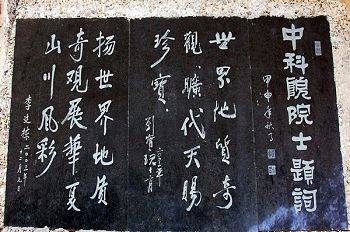 中科院院士题词
甲申年秋月
世界地质奇
观，旷代天赐
珍宝。
刘宝珺
扬世界地质
奇观展华夏
山川风彩
李廷栋 二〇〇三年